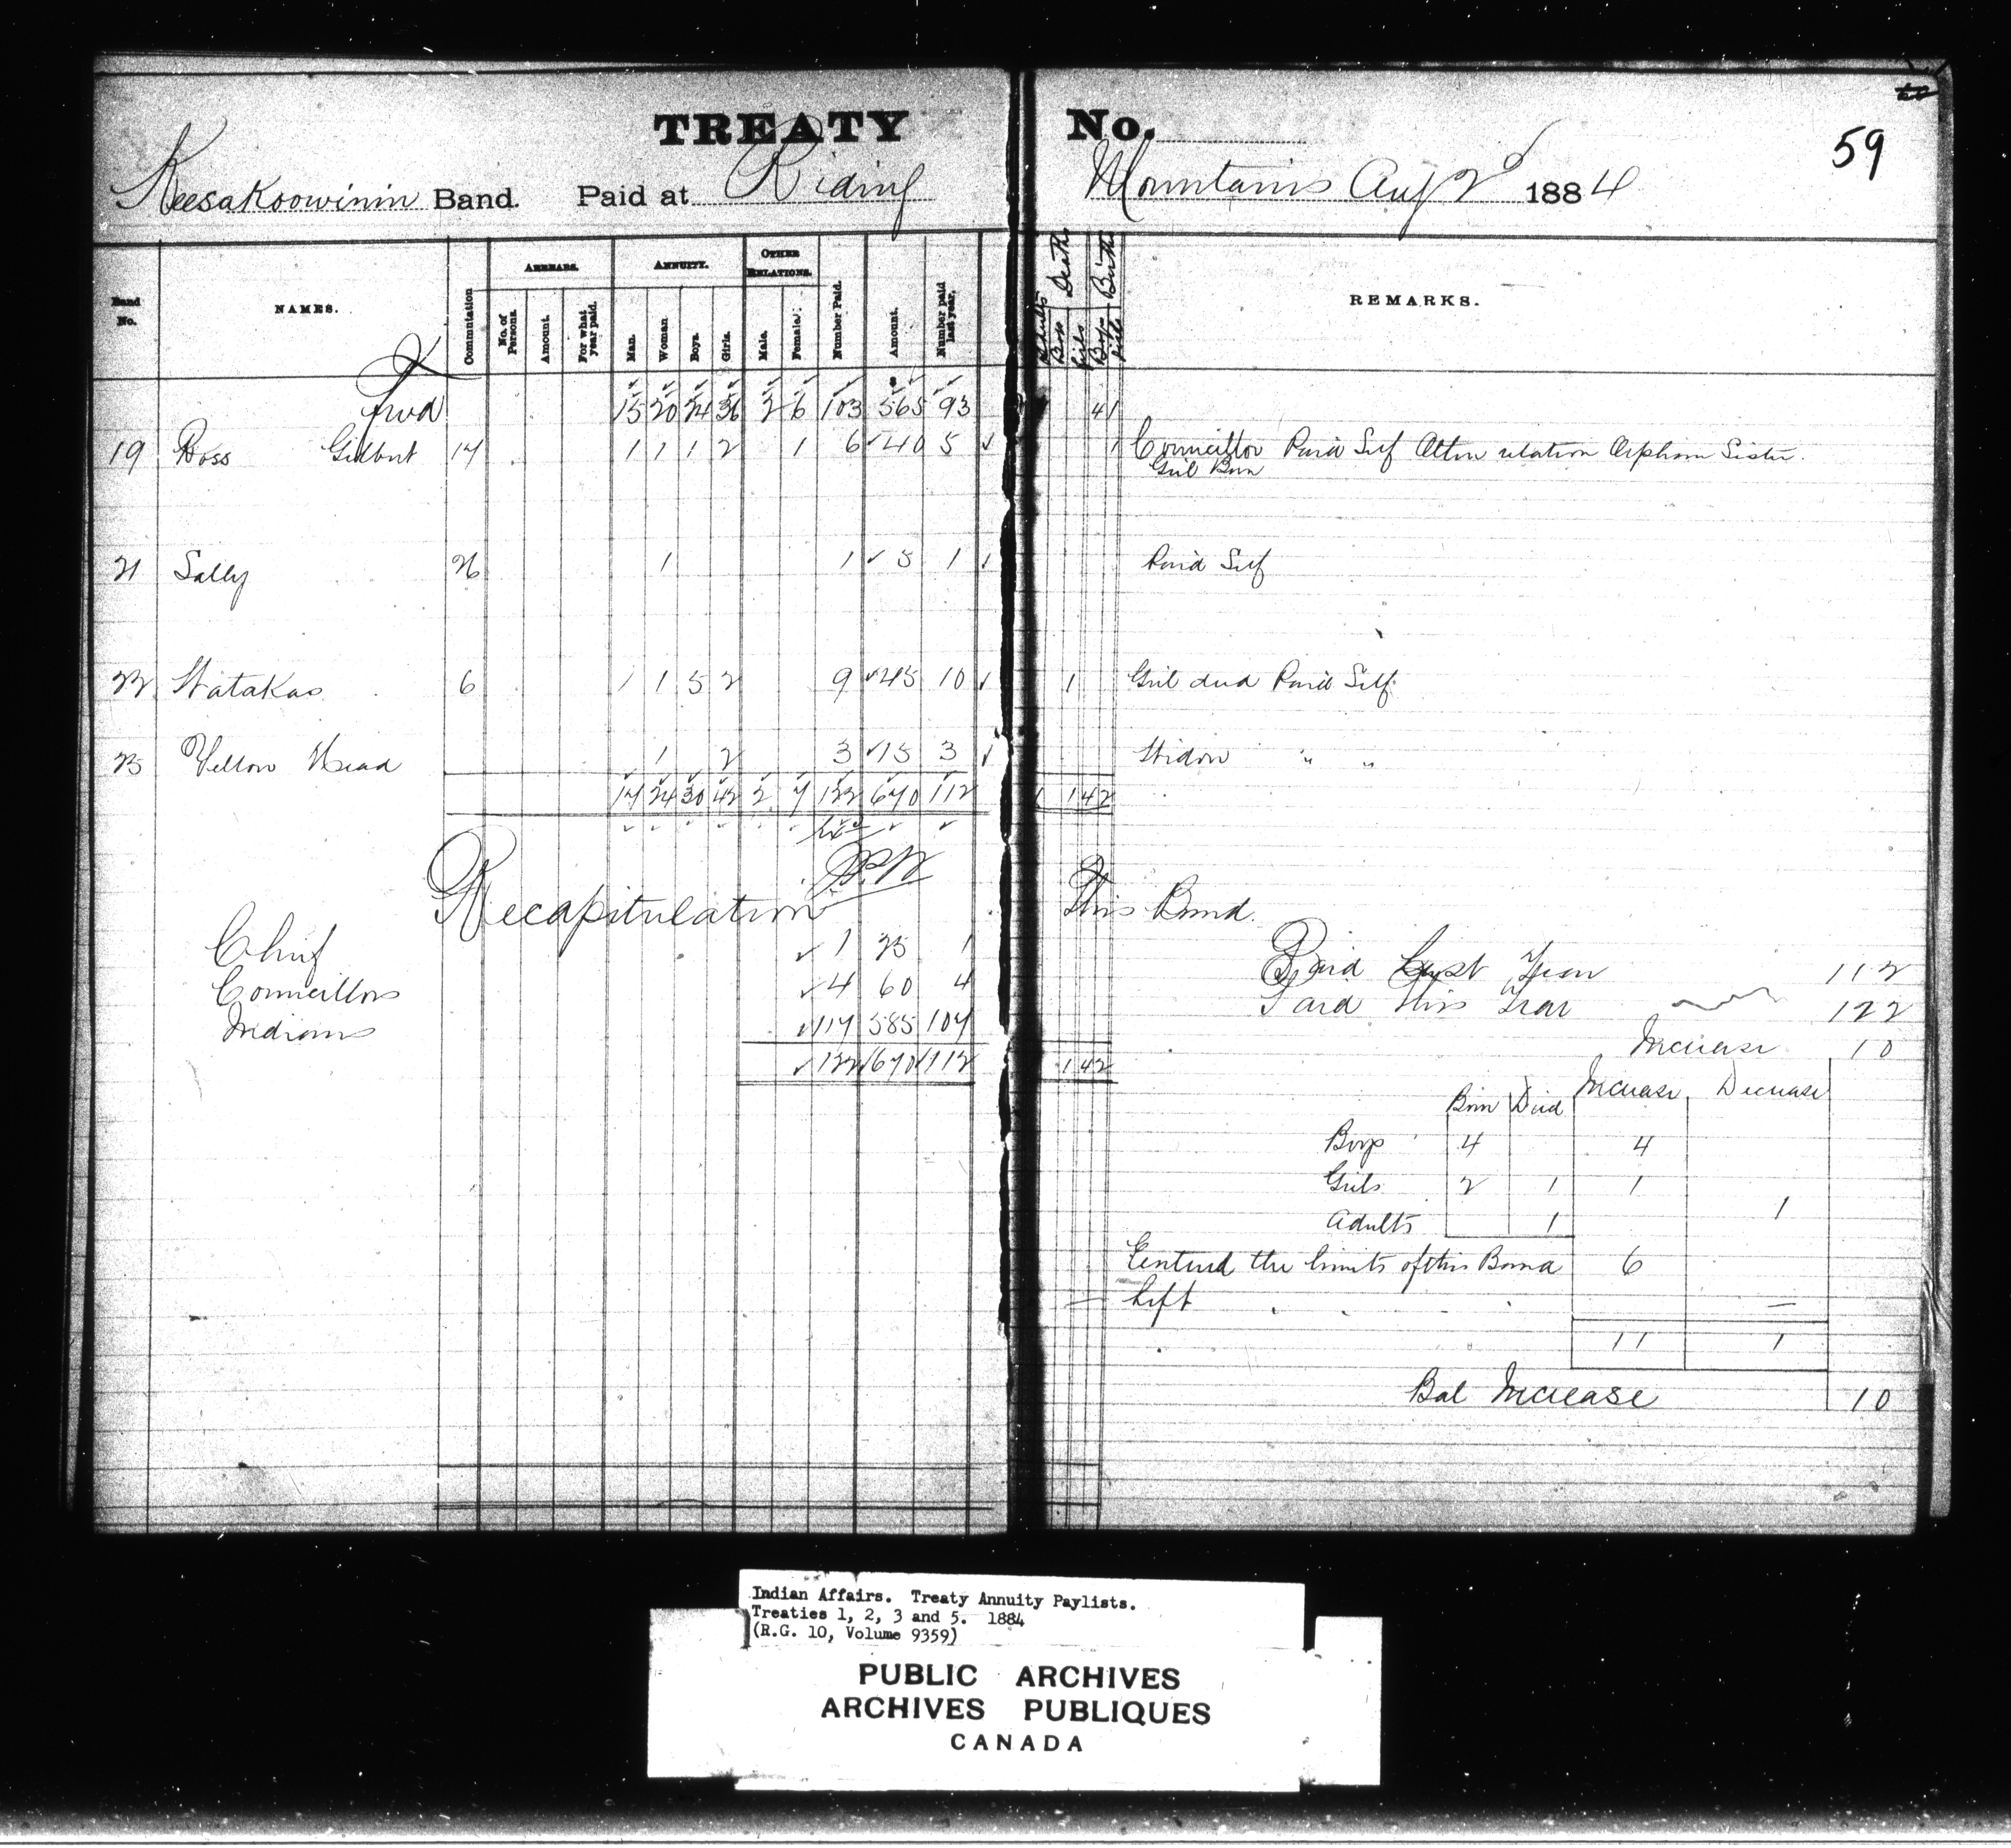 TREATY No.
59
Keesakoowinin Band. Paid at Riding Mountains Aug 2 1884
Band No. NAMES. Commutation ARREARS. No. of Persons. Amount. For what year paid. ANNUITY. Man. Woman Boys. Girls. OTHER RELATIONS. Male. Female. Number Paid. Amount. Number paid last year. Adults Boys Girls Deaths Boys Girls Births REMARKS.
Fwd 15 20 24 36 2 6 103 565 93 4 1
19 Ross Gilbert 17 1 1 1 2 1 6 40 5 1 Councillor Paid Self Other relation Orphan Sister.
Girl Born
21 Sally 26 1 1 5 1 Paid Self
22 Watakas 6 1 1 5 2 9 45 10 1 Girl died Paid Self
23 Yellow Head 1 2 3 15 3 Widow " "
17 24 30 42 2 7 122 670 112 1 1 4 2
Recapitulation This Band.
Chief 1 25 1
Councillors 4 60 4
Indians 117 585 107
122 670 112 1 4 2
Paid Last Year 112
Paid This Year 122
Increase 10
Born Died Increase Decrease
Boys 4 4
Girls 2 1 1
Adults 1 1
Entered the limits of this Band 6
Left —
11 1
Bal Increase 10
Indian Affairs. Treaty Annuity Paylists.
Treaties 1, 2, 3 and 5. 1884
(R.G. 10, Volume 9359)
PUBLIC ARCHIVES
ARCHIVES PUBLIQUES
CANADA